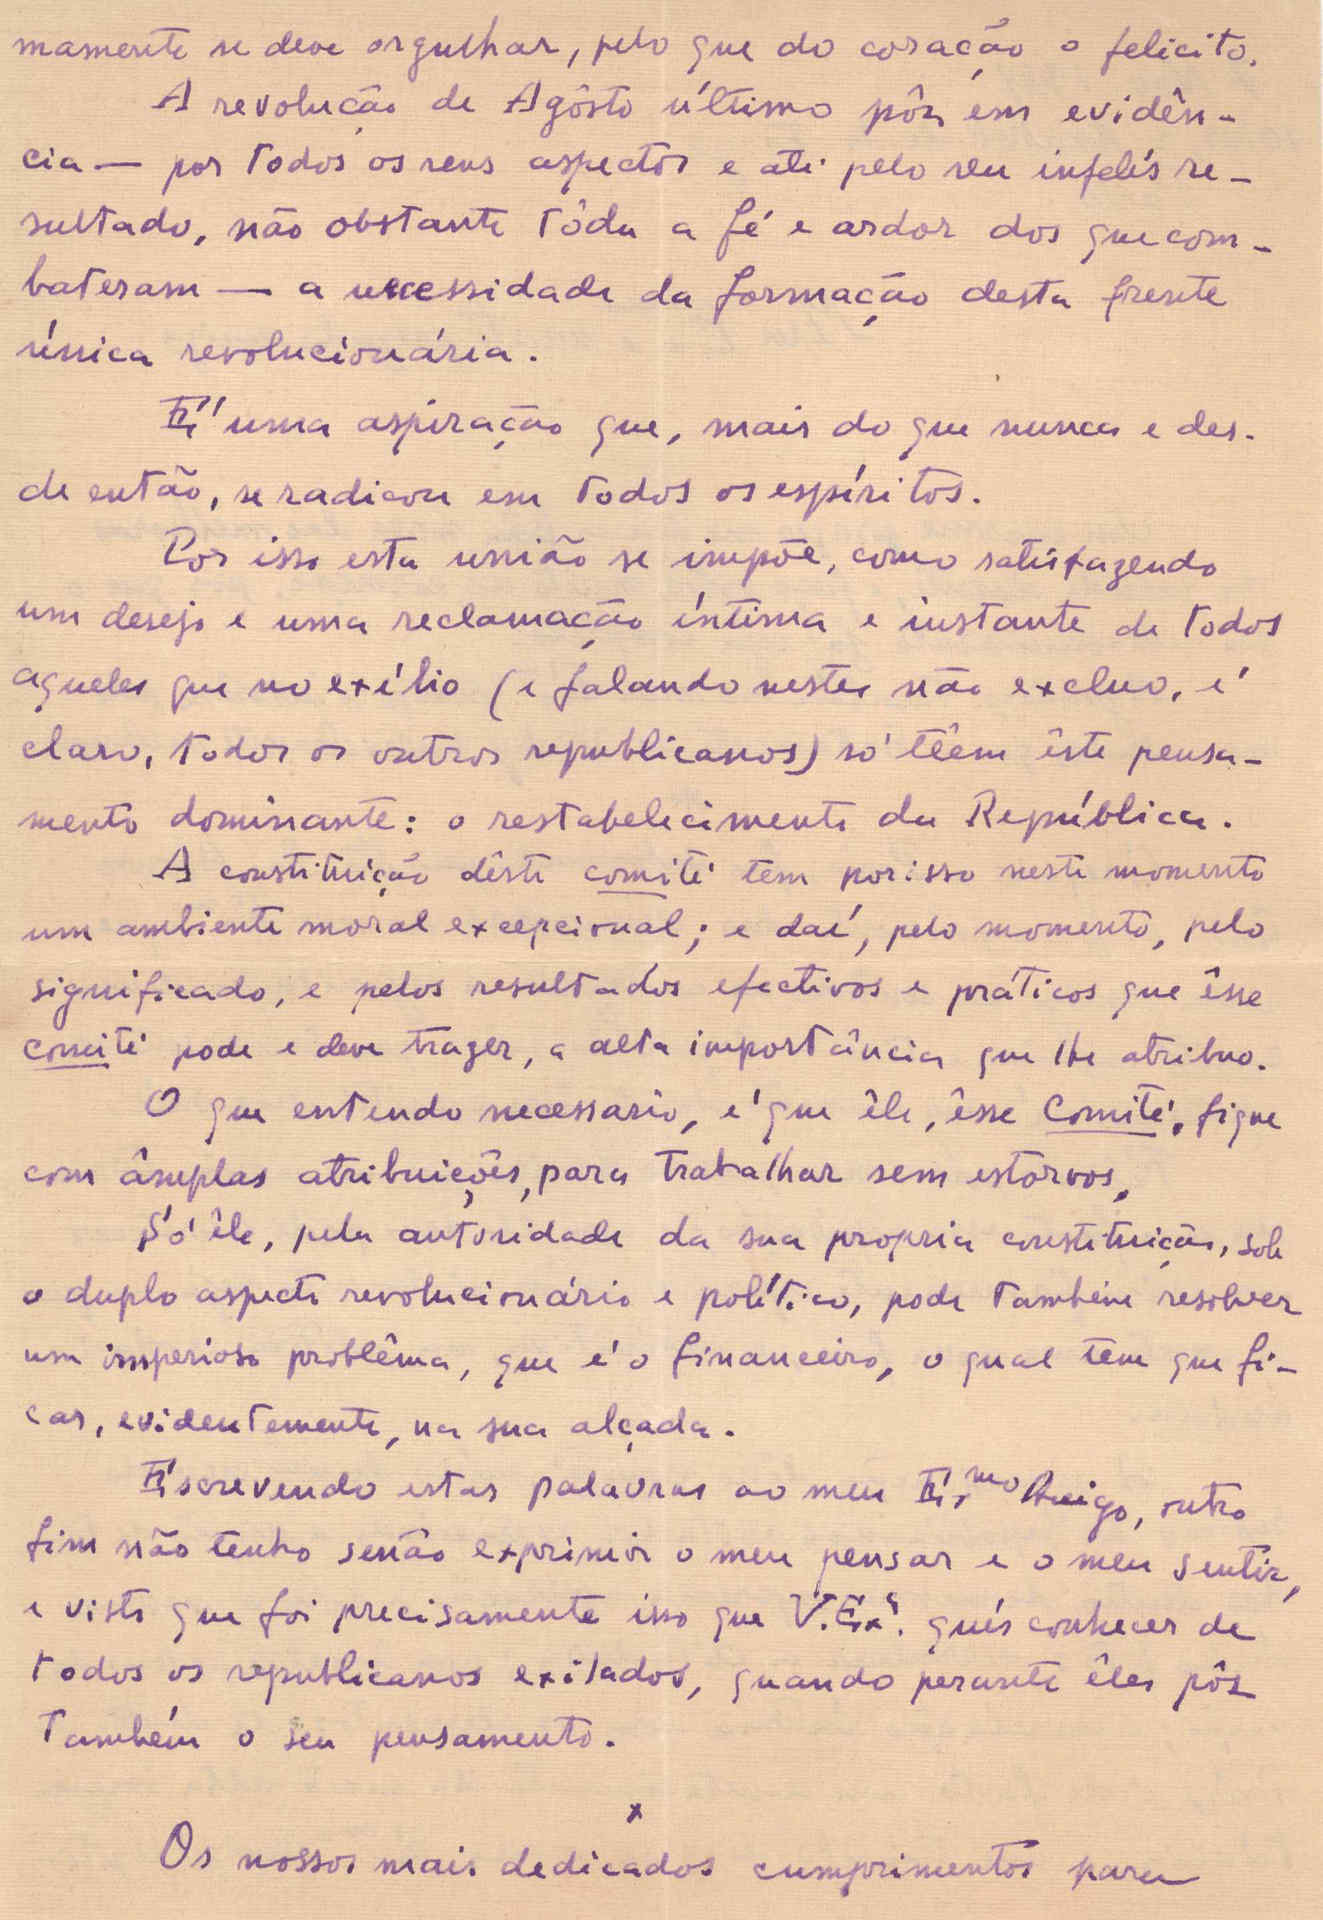 mamente se deve orgulhar, pelo que do coração o felicito.
A revolução de Agôsto último pôz em evidên-
cia — por todos os seus aspectos e até pelo seu infelis re-
sultado, não obstante tôda a fé e ardor dos que com-
bateram — a necessidade da formação desta frente
única revolucionária.
É uma aspiração que, mais do que nunca e des-
de então, se radicou em todos os espíritos.
Por isso esta união se impõe, como satisfazendo
um desejo e uma reclamação íntima e instante de todos
aqueles que no exílio (e falando nestes não excluo, é
claro, todos os outros republicanos) só têem êste pensa-
mento dominante: o restabelecimento da República.
A constituição dêste comité tem por isso neste momento
um ambiente moral excepcional; e daí, pelo momento, pelo
significado, e pelos resultados efectivos e práticos que êsse
comité pode e deve trazer, a alta importância que lhe atribuo.
O que entendo necessario, é que êle, êsse Comité, fique
com âmplas atribuições, para trabalhar sem estorvos.
Só êle, pela autoridade da sua propria constituição, sob
o duplo aspecto revolucionário e político, pode também resolver
um imperioso problêma, que é o financeiro, o qual tem que fi-
car, evidentemente, na sua alçada.
Escrevendo estas palavras ao meu Ex.mo Amigo, outro
fim não tenho senão exprimir o meu pensar e o meu sentir,
e visto que foi precisamente isso que V. Ex.ª quís conhecer de
todos os republicanos exilados, quando perante êles pôz
também o seu pensamento.
x
Os nossos mais dedicados cumprimentos para